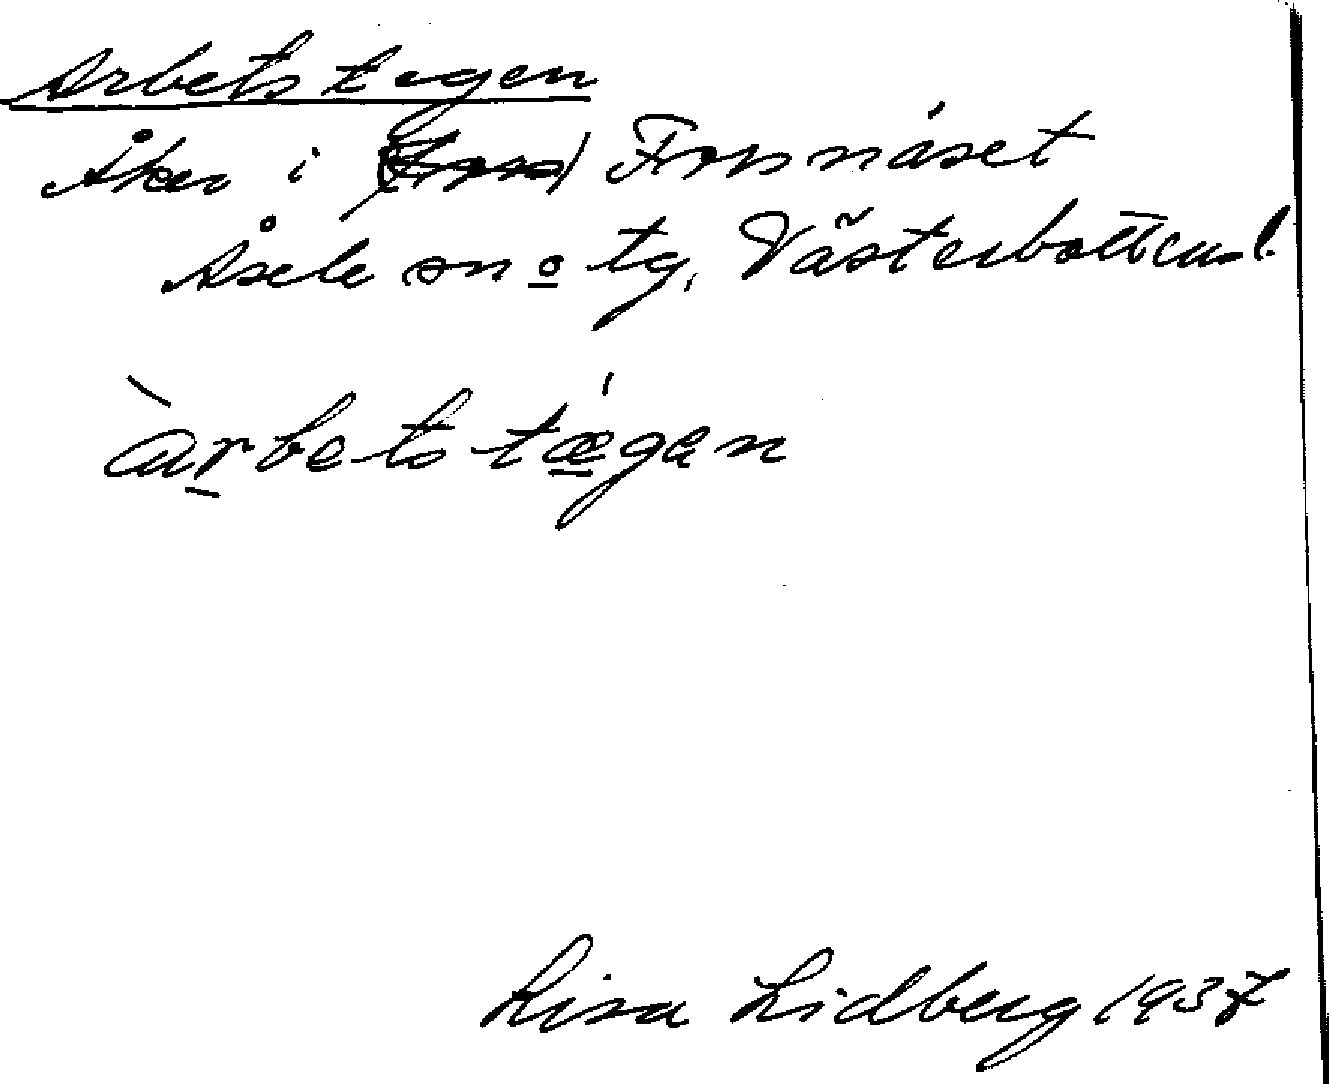 Arbetstegen
Åker i Forsnäset
Åsele sn o tg, Västerbottens l.
àrbetstægen
Lisa Lidberg 1937